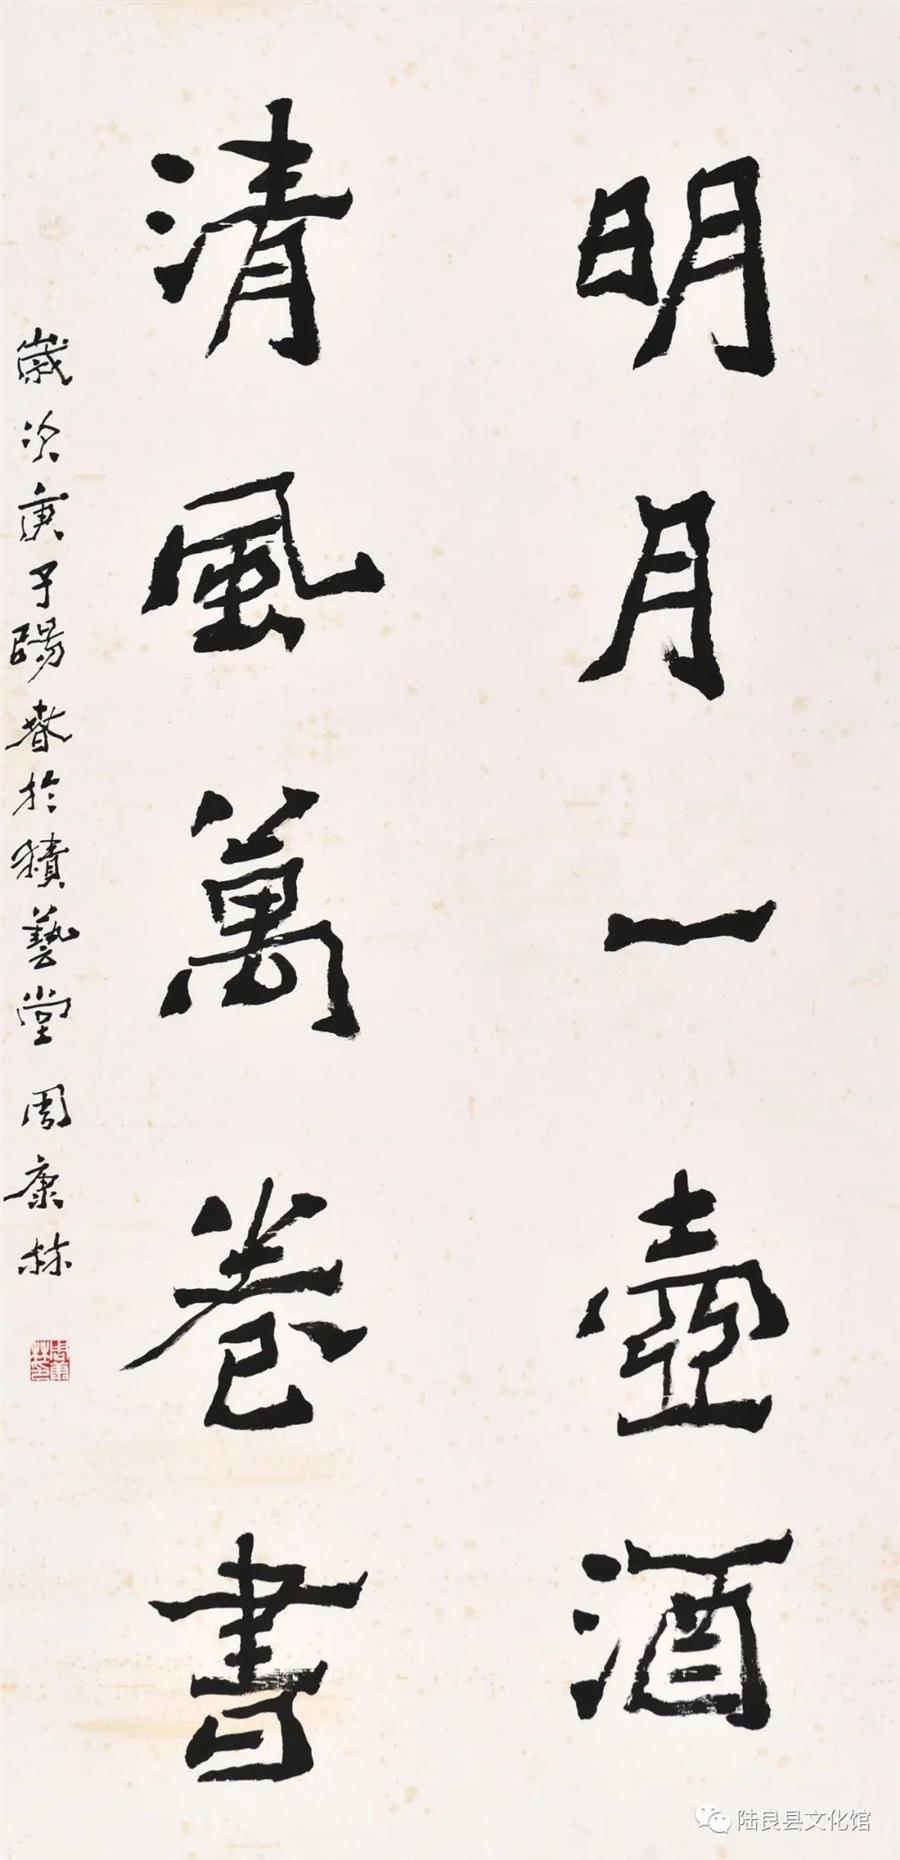 明月一壺酒
清風萬卷書
歲次庚子陽春於積藝堂 周康林
周康林印
陆良县文化馆